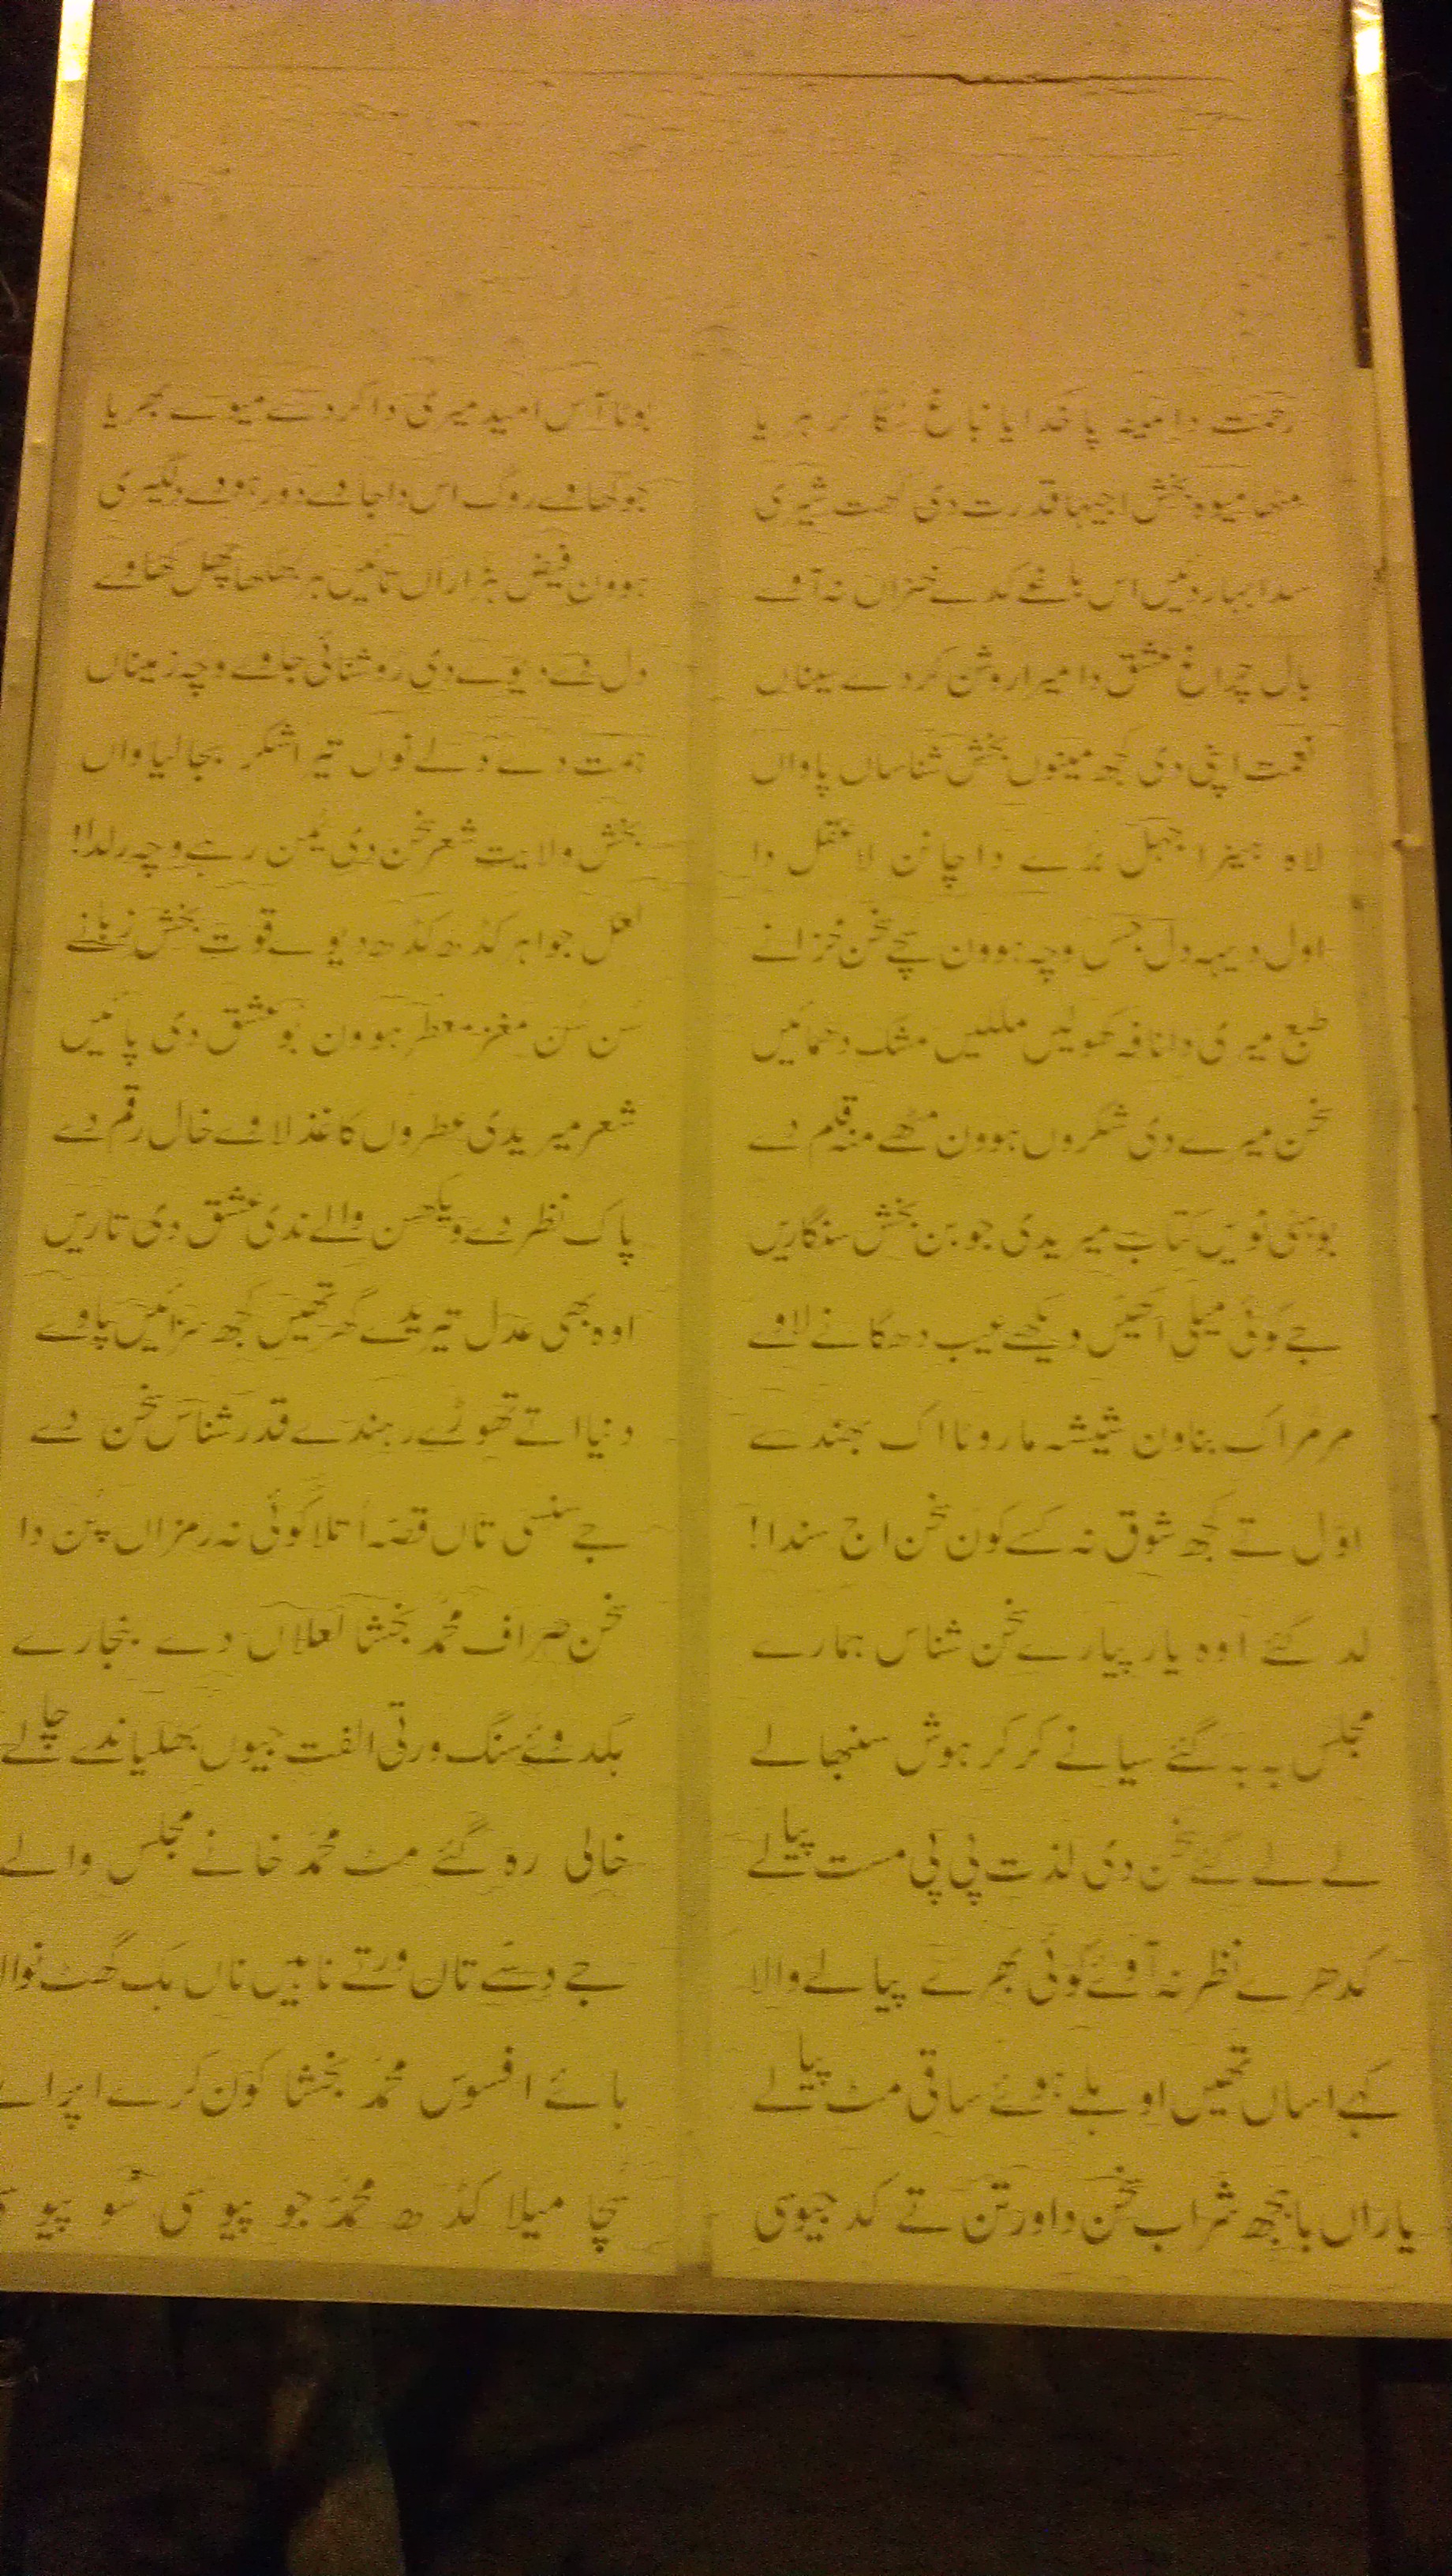 رحمت دا مینہ پا خدایا باغ سُکا کر ہریا
بوٹا آس امید میری دا کردے میوے بھریا
مٹھا میوہ بخش اجیہا قدرت دی گھت شیری
جو کھاوے روگ اس دا جاوے دور ہووے دلگیری
سدا بہار دئیں اس باغے کدے خزاں نہ آوے
ہوون فیض ہزاراں تائیں ہر بھکھا پھل کھاوے
بال چراغ عشق دا میرا روشن کردے سیناں
دل دے دیوے دی روشنائی جاوے وچہ زمیناں
نعمت اپنی دی کجھ مینوں بخش شناساں پاواں
ہمت دے دلے نوں تیرا شکر بجا لیاواں
لاہ ہنیرا جہل بُرے دا چانن لا عقل دا
بخش ولایت شعر سخن دی یُمن رہے وچہ رلدا!
اول دیہہ دل جس وچہ ہوون سچے سخن خزانے
لعل جواہر کڈھ کڈھ دیوے قوت بخش زبانے
طبع میری دا نافہ کھولیں ملیں مشک دھمائیں
سُن سُن مغز معطر ہوون بو عشق دی پائیں
سخن میرے دی شکروں ہوون مٹھے منہ قلم دے
شعر میریدی عطروں کاغذ لاوے خال رقم دے
بوہتی نویں کتاب میریدی جوبن بخش سنگاریں
پاک نظر دے ویکھن والے ندی عشق دی تاریں
جے کوئی میلی اکھیں دیکھے عیب دھگانے لاوے
اوہ بھی عدل تیریدے گھر تھیں کجھ سزائیں پاوے
مر مر اک بناون شیشہ مار وٹا اک بھندے
دنیا اتے تھوڑے رہندے قدر شناس سخن دے
اوّل تے کجھ شوق نہ کسے کون سخن اج سندا!
جے سنسی تاں قصّہ اتلا کوئی نہ رمزاں پُن دا
لد گئے اوہ یار پیارے سخن شناس ہمارے
سخن صراف محمدؐ بخشا لعلاں دے بنجارے
مجلس بہ بہ گئے سیانے کر کر ہوش سنبھالے
بکدوئے سنگ ورتی الفت جیوں بھلیاندے چالے
لے لے گئے سخن دی لذت پی پی مست پیالے
خالی رہ گئے مٹ محمدؐ خانے مجلس والے
کدھرے نظر نہ آوے کوئی بھرے پیالے والا
جے دسّے تاں ورتے ناہیں ناں بک گھٹ نوالا
کہے اساں تھیں اوہلے ہوئے ساقی مٹ پیالے
ہائے افسوس محمدؐ بخشا کون کرے اپرالے
یاراں باجھ شراب سخن دا ورتن تے کد جیوی
بچا میلا کڈھ محمدؐ جو پیوی سُو پیوی